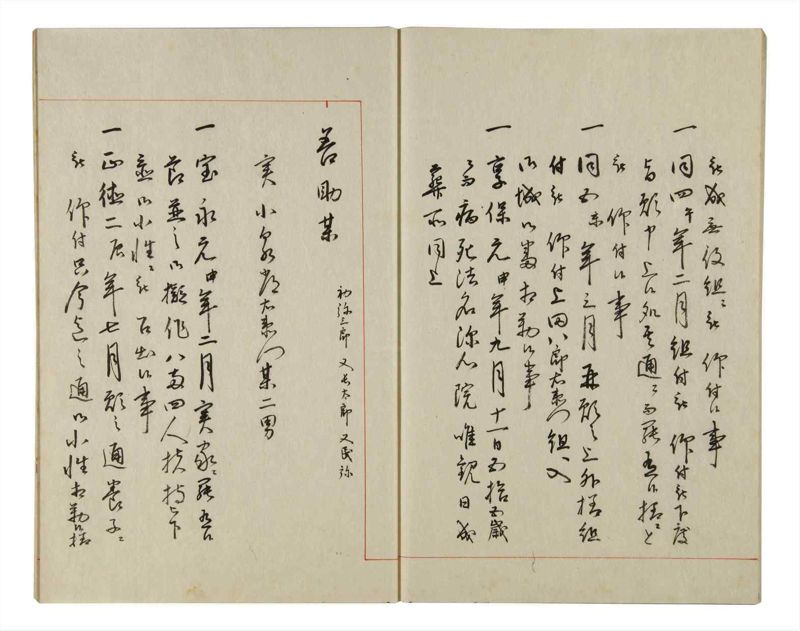 被成無役組ニ被 仰付候事
一 同四午年二月組付被 仰付被下度
旨願申上候処其通ニ而罷在候様ニと
被 仰付候事
一 同五未年三月再願之上外様組
付被 仰付上田八郎右衛門組ニ入
御城御番相勤候事
一 享保元申年九月十一日五拾五歳
ニ而病死法名 院唯観日成
葬所同上
善助某 初弥三郎 又長太郎 又民弥
実小泉 右衛門某二男
一 宝永元申年二月実家ニ罷在候
節並之御擬作八両四人扶持被下
並御小性ニ被 召出候事
一 正徳二辰年七月願之通養子ニ
被 仰付只今迄之通御小性相勤候様